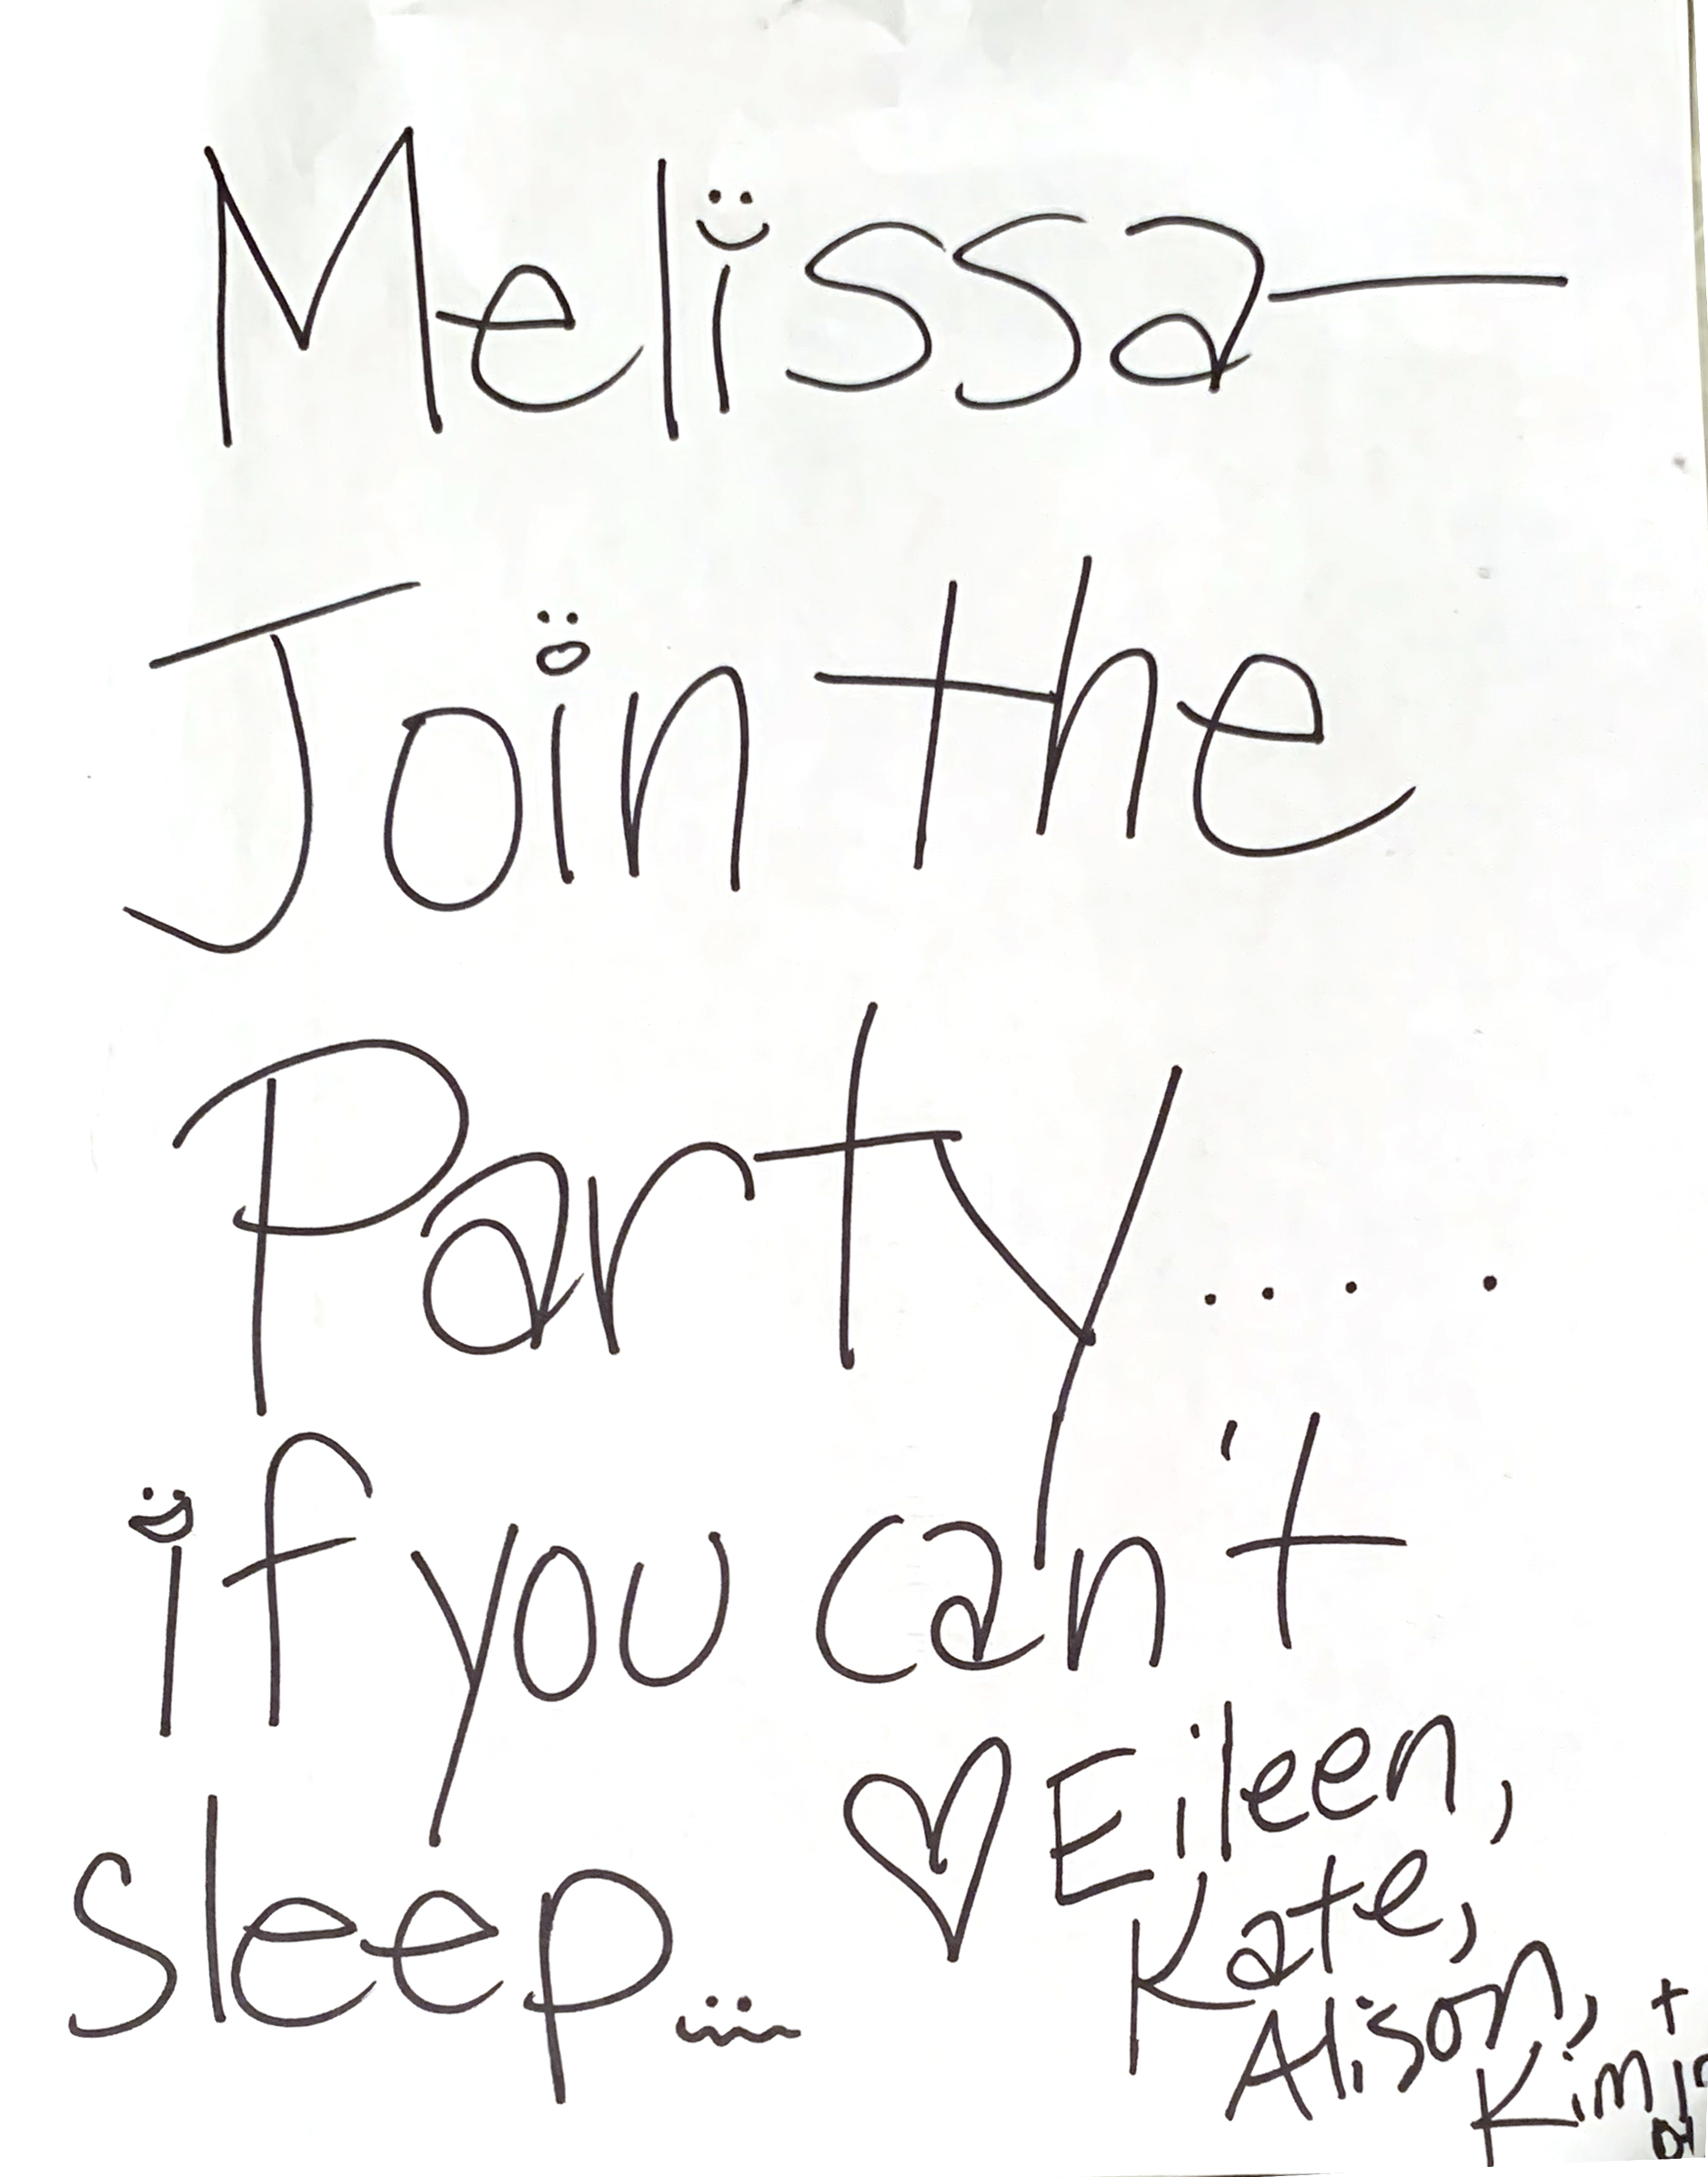 Melissa—
Join the
Party....
if you can't
sleep...
♡ Eileen,
Kate,
Alison, +